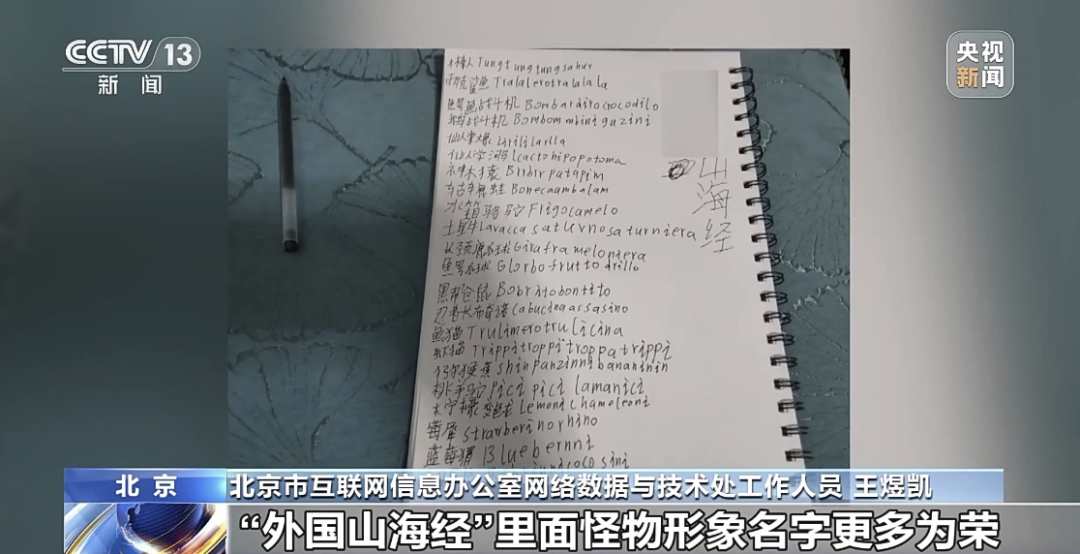 CCTV 13
新闻
央视
新闻
木棒人 Tungtungtungsahur
鲨鱼 Tralalerotralalala
鳄鱼战斗机 Bombardirocrocodilo
战斗机 Bombombiniguzini
仙人掌 Lirililarila
仙人掌河 Icactohipopotoma
木猿 Brbrpatapim
蛙 Bonecaambalam
冰箱骆驼 Frigocamelo
土星牛 Lavaccasaturnosaturniera
长颈鹿 Giraframeloniera
鳄鱼 Glorbofruttodrillo
黑 鼠 Bobritobontito
忍者卡布奇诺 Cabucinaassasino
猫 Trulimerotrulicina
虾猫 Trippitroppitroppatrippi
猴蕉 shinpanzinnibananinin
羊驼 pici pici lamanici
柠檬变色龙 Lemonichameleoni
莓犀 strawberinorhino
蓝莓 Bluebernni
山海经
北京
北京市互联网信息办公室网络数据与技术处工作人员 王煜凯
“外国山海经”里面怪物形象名字更多为荣